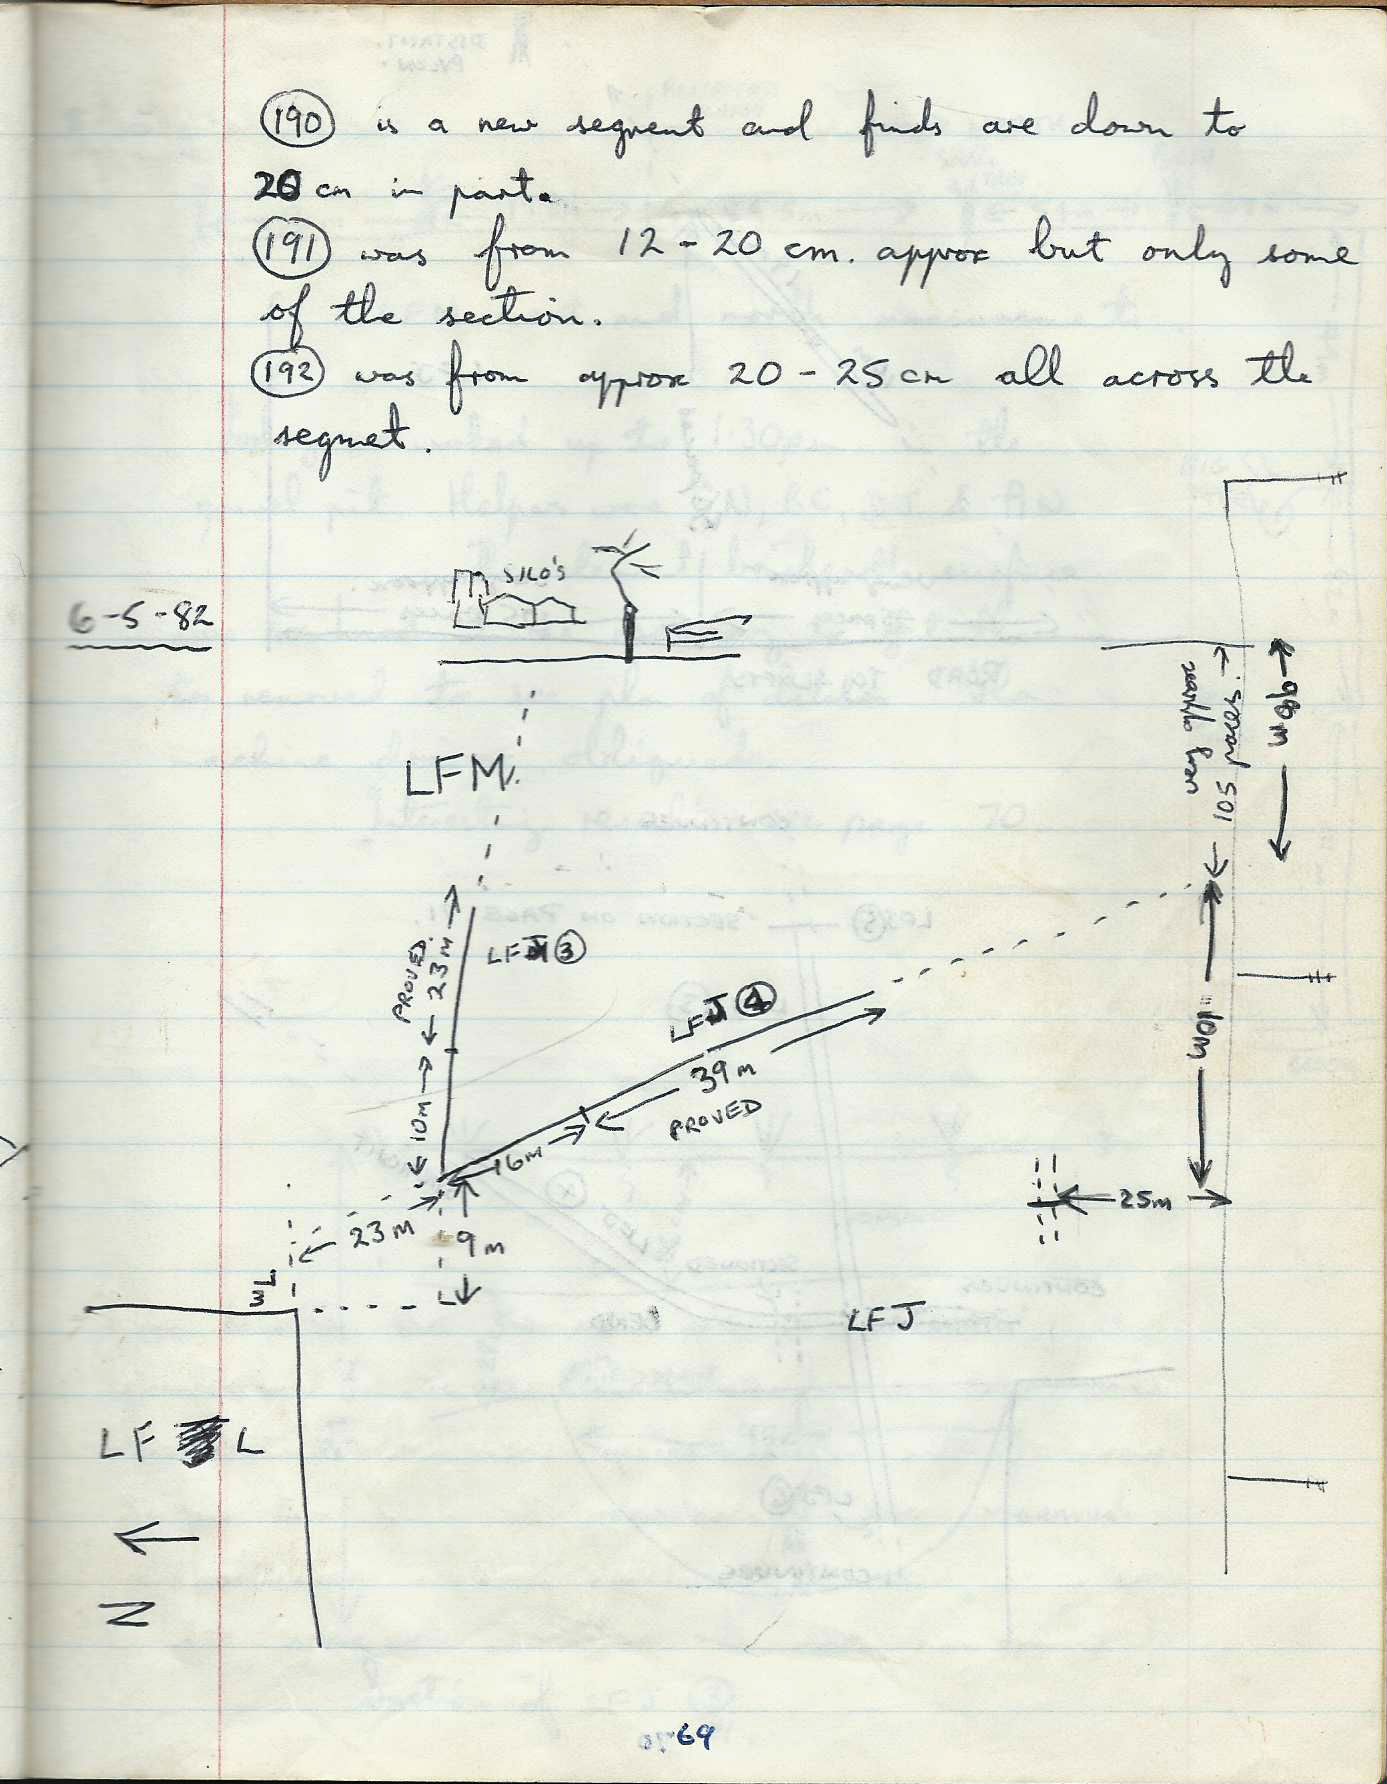 190 is a new segment and finds are down to
20 cm in part.
191 was from 12 - 20 cm. approx but only some
of the section.
192 was from approx 20 - 25 cm all across the
segmet.
6-5-82
SILO'S
LFM
very approx
105 paces.
PROVED.
23M
LFJ 3
LFJ 4
39m
PROVED
10M
16m
23M
9M
WL
25m
LFJ
LF L
N
69